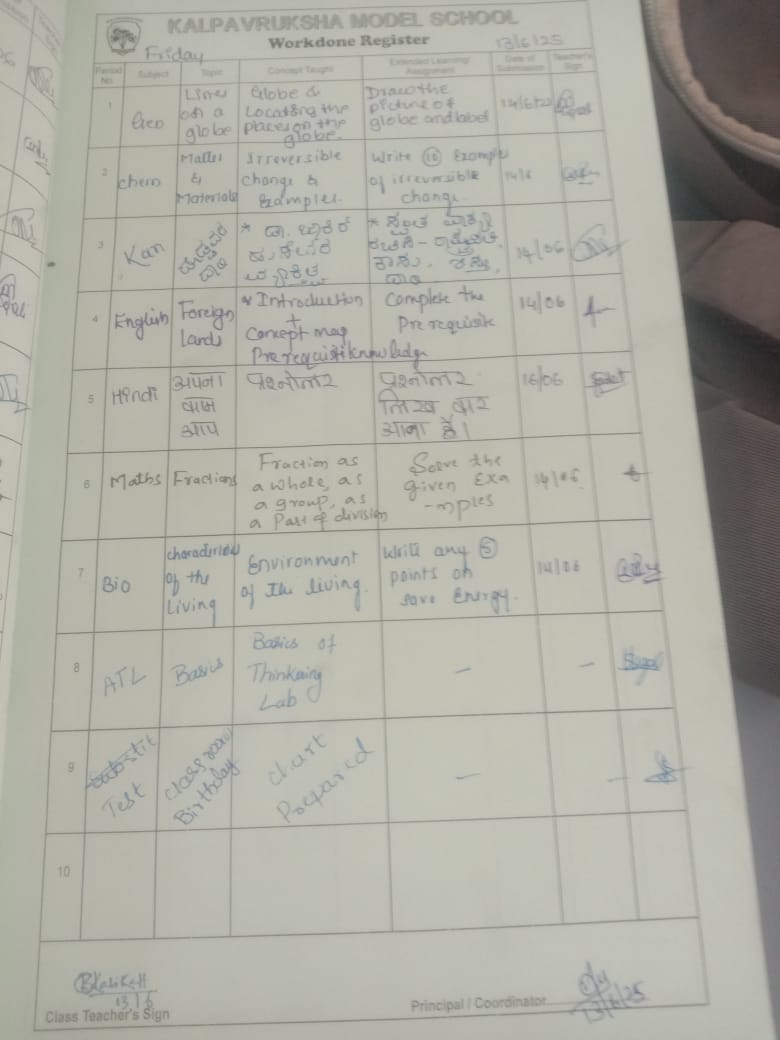 KALPAVRUKSHA MODEL SCHOOL
Workdone Register
Friday
13/6/25
Period No.
Subject
Topic
Concept Taught
Extended Learning/ Assignment
Date of Submission
Teacher's Sign
1
Geo
Lines
on a
globe
Globe &
Locating the
places on the
globe.
Draw the
picture of
globe and label
14/6/
2
Chem
Matter
&
Materials
Irreversible
Change &
Examples.
Write 10 Example
of irreversible
change.
14/6
3
Kan
14/06
4
English
Foreign
Lands
* Introduction
+
Concept map
Prerequisite knowledge
Complete the
Prerequisite
14/06
5
Hindi
अपना
काम
आप
प्रश्नोत्तर
प्रश्नोत्तर
लिख कर
आना है।
16/06
6
Maths
Fractions
Fraction as
a whole, as
a group, as
a Part of division
Solve the
given Exa
-mples
14/06
7
Bio
of the
Living
Environment
of the living.
Write any 5
points on
save Energy.
14/06
8
ATL
Basics
Basics of
Lab
-
-
9
Test
Classroom
Birthday
Chart
Prepared
-
-
10
13/6
Class Teacher's Sign
Principal / Coordinator
13/6/25